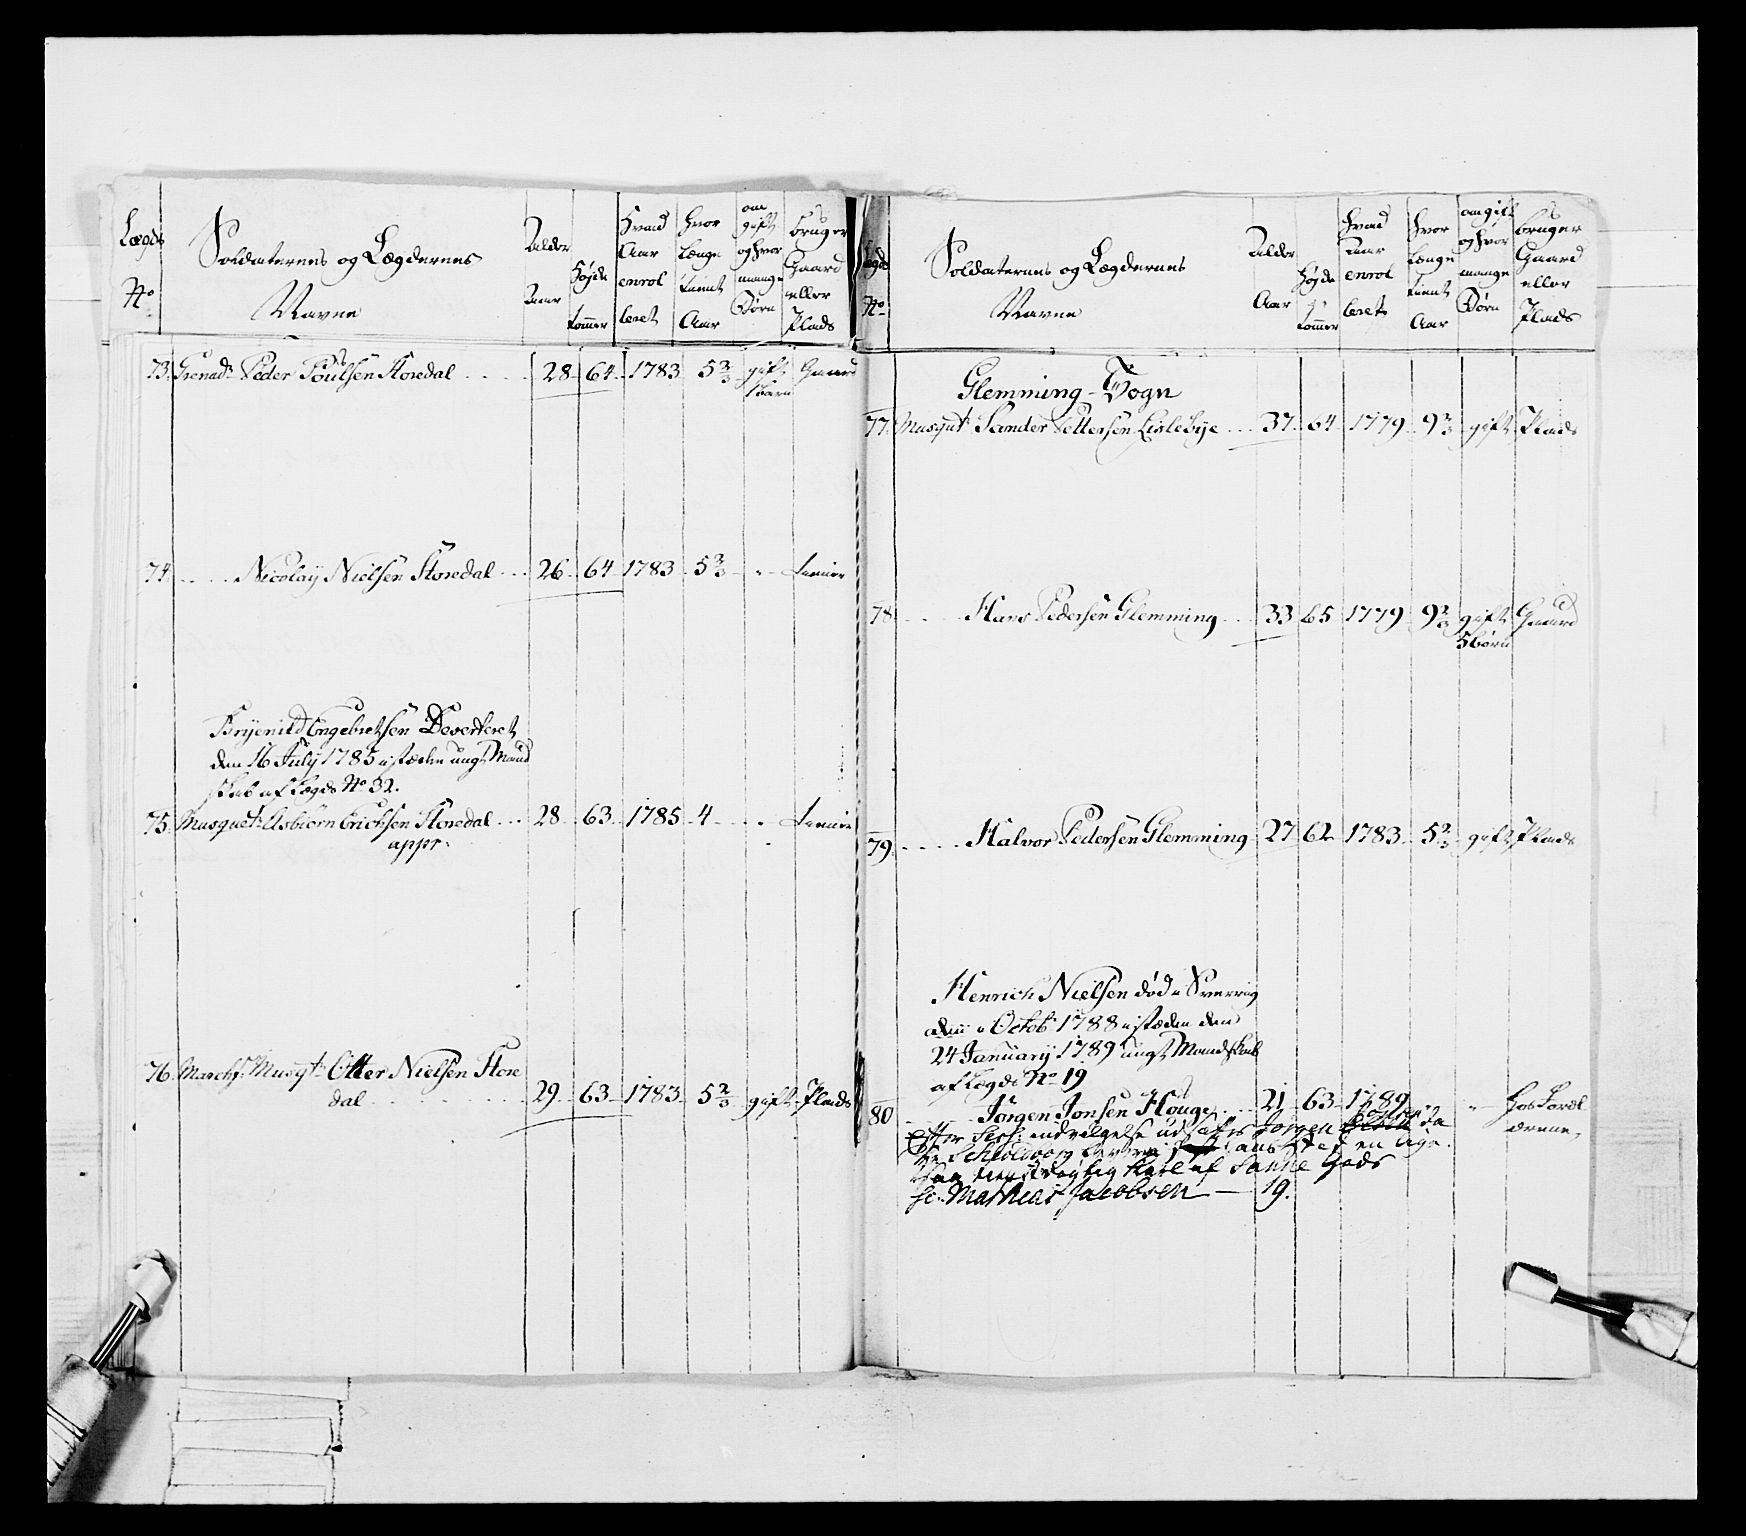 Lægds No
Soldaternes og Lægdernes Navne
Alder Aar
Højde Tommer
Hvad Aar enrolleret
Hvor Længe tient Aar
om gift og hvor mange Børn
bruger Gaard eller Plads
73. Grenadr Peder Poulsen Storedal . . . 28 64 1783 5 2/3 gift Gaard
1 barn
74. . . . Nicolay Nielsen Storedal . . . 26 64 1783 5 2/3 " tiener
Brÿenild Engebretsen Deserteret
den 16 July 1785 istæden ungt Mand
skab af Lægds No 32.
75. Musquetr Asbiørn Erichsen Storedal . . . 28 63 1785 4 . . tiener
appr:
76. Marchr Musqtr Otter Nielsen Store
dal . . . 29 63 1783 5 2/3 gift Plads
Lægds No
Soldaternes og Lægdernes Navne
Alder Aar
Højde Tommer
Hvad Aar enrolleret
Hvor Længe tient Aar
om gift og hvor mange Børn
bruger Gaard eller Plads
Glemming Sogn
77. Musqutr Sander Pettersen Lislebye . . . 37 64 1779 9 2/3 gift Plads
78. . . . Hans Pedersen Glemming . . . 33 65 1779 9 2/3 gift Gaard
5 børn
79. . . . Halvor Pedersen Glemming 27 62 1783 5 2/3 gift Plads
Henrich Nielsen død i Sverrig
den " Octobr 1788 istæden den
24 January 1789 ungt Mandskab
af Lægds No 19
80 . . . Jørgen Jonsen Houge . . . 21 63 1789 " hos Forældrerne,
Efter Sess: indvilgelse udsættes Jørgen da
en
dygtig Karl af Gods
hr Mathias Jacobsen — 19.